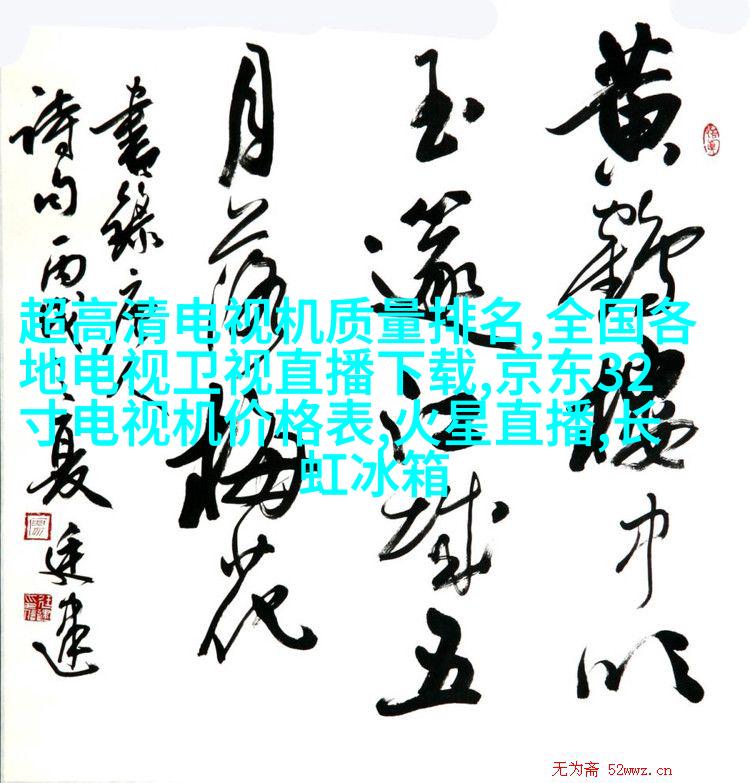 黄鶴樓中吹
玉篴江城五
月落梅花
書録唐人
詩句丙戌之夏 廷建
超高清电视机质量排名,全国各
地电视卫视直播下载,京东32
寸电视机价格表,火星直播,长
虹冰箱
无为斋 52wwz.cn